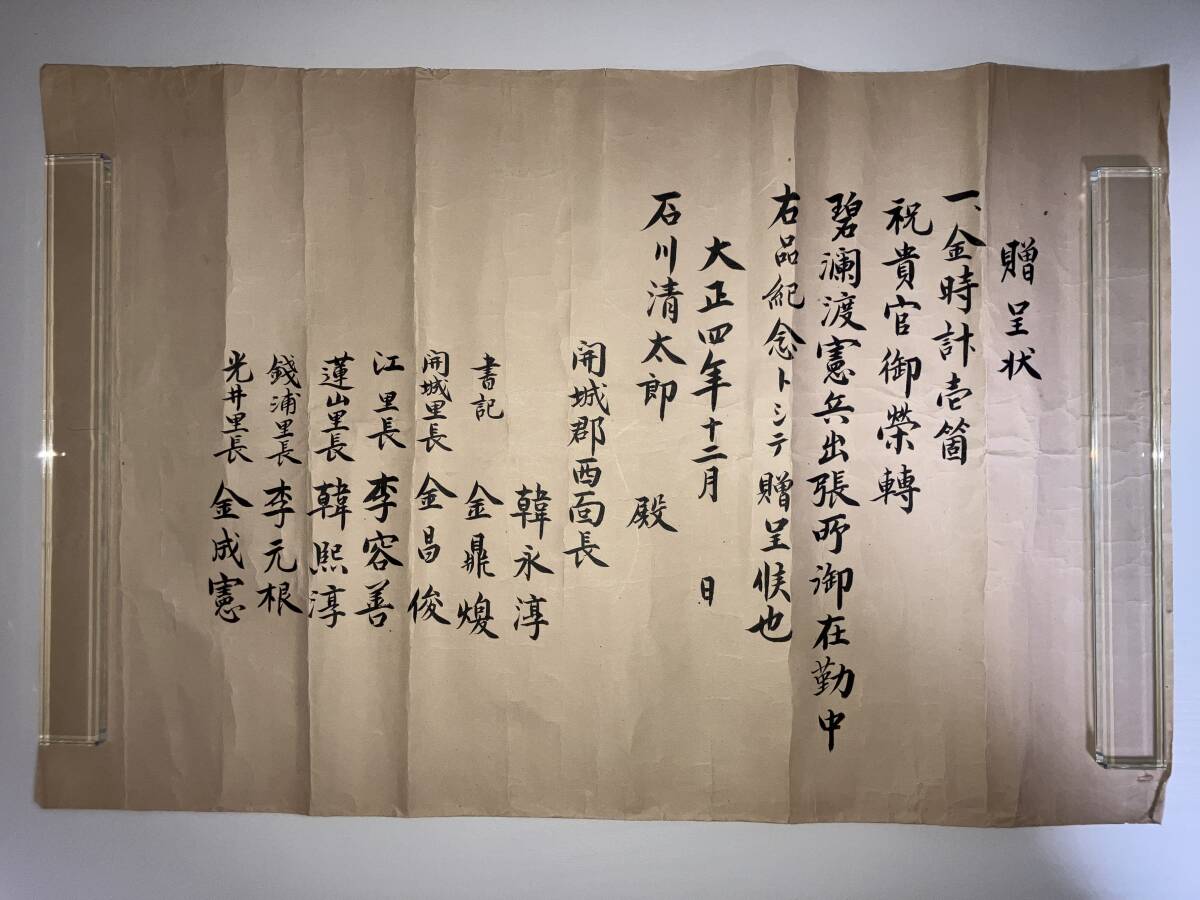 贈呈状
一、金時計壱箇
祝貴官御榮轉
碧瀾渡憲兵出張所御在勤中
右品紀念トシテ贈呈候也
大正四年十二月 日
石川清太郎 殿
開城郡西面長
韓永淳
書記 金鼎煥
開城里長 金昌俊
江里長 李容善
蓮山里長 韓熙淳
錢浦里長 李元根
光井里長 金成憲